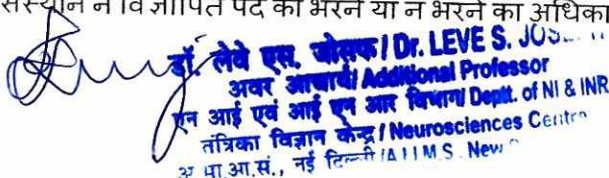 संस्थान ने विज्ञापित पद को भरने या न भरने का
डॉ. लेवे एस. जोसफ / Dr. LEVE S.
अवर आचार्य/ Additional Professor
एन आई एवं आई एन आर विभाग/ Deptt. of NI & INR
तंत्रिका विज्ञान केन्द्र / Neurosciences
आ.सं., नई दिल्ली /A.I.I.M.S. New